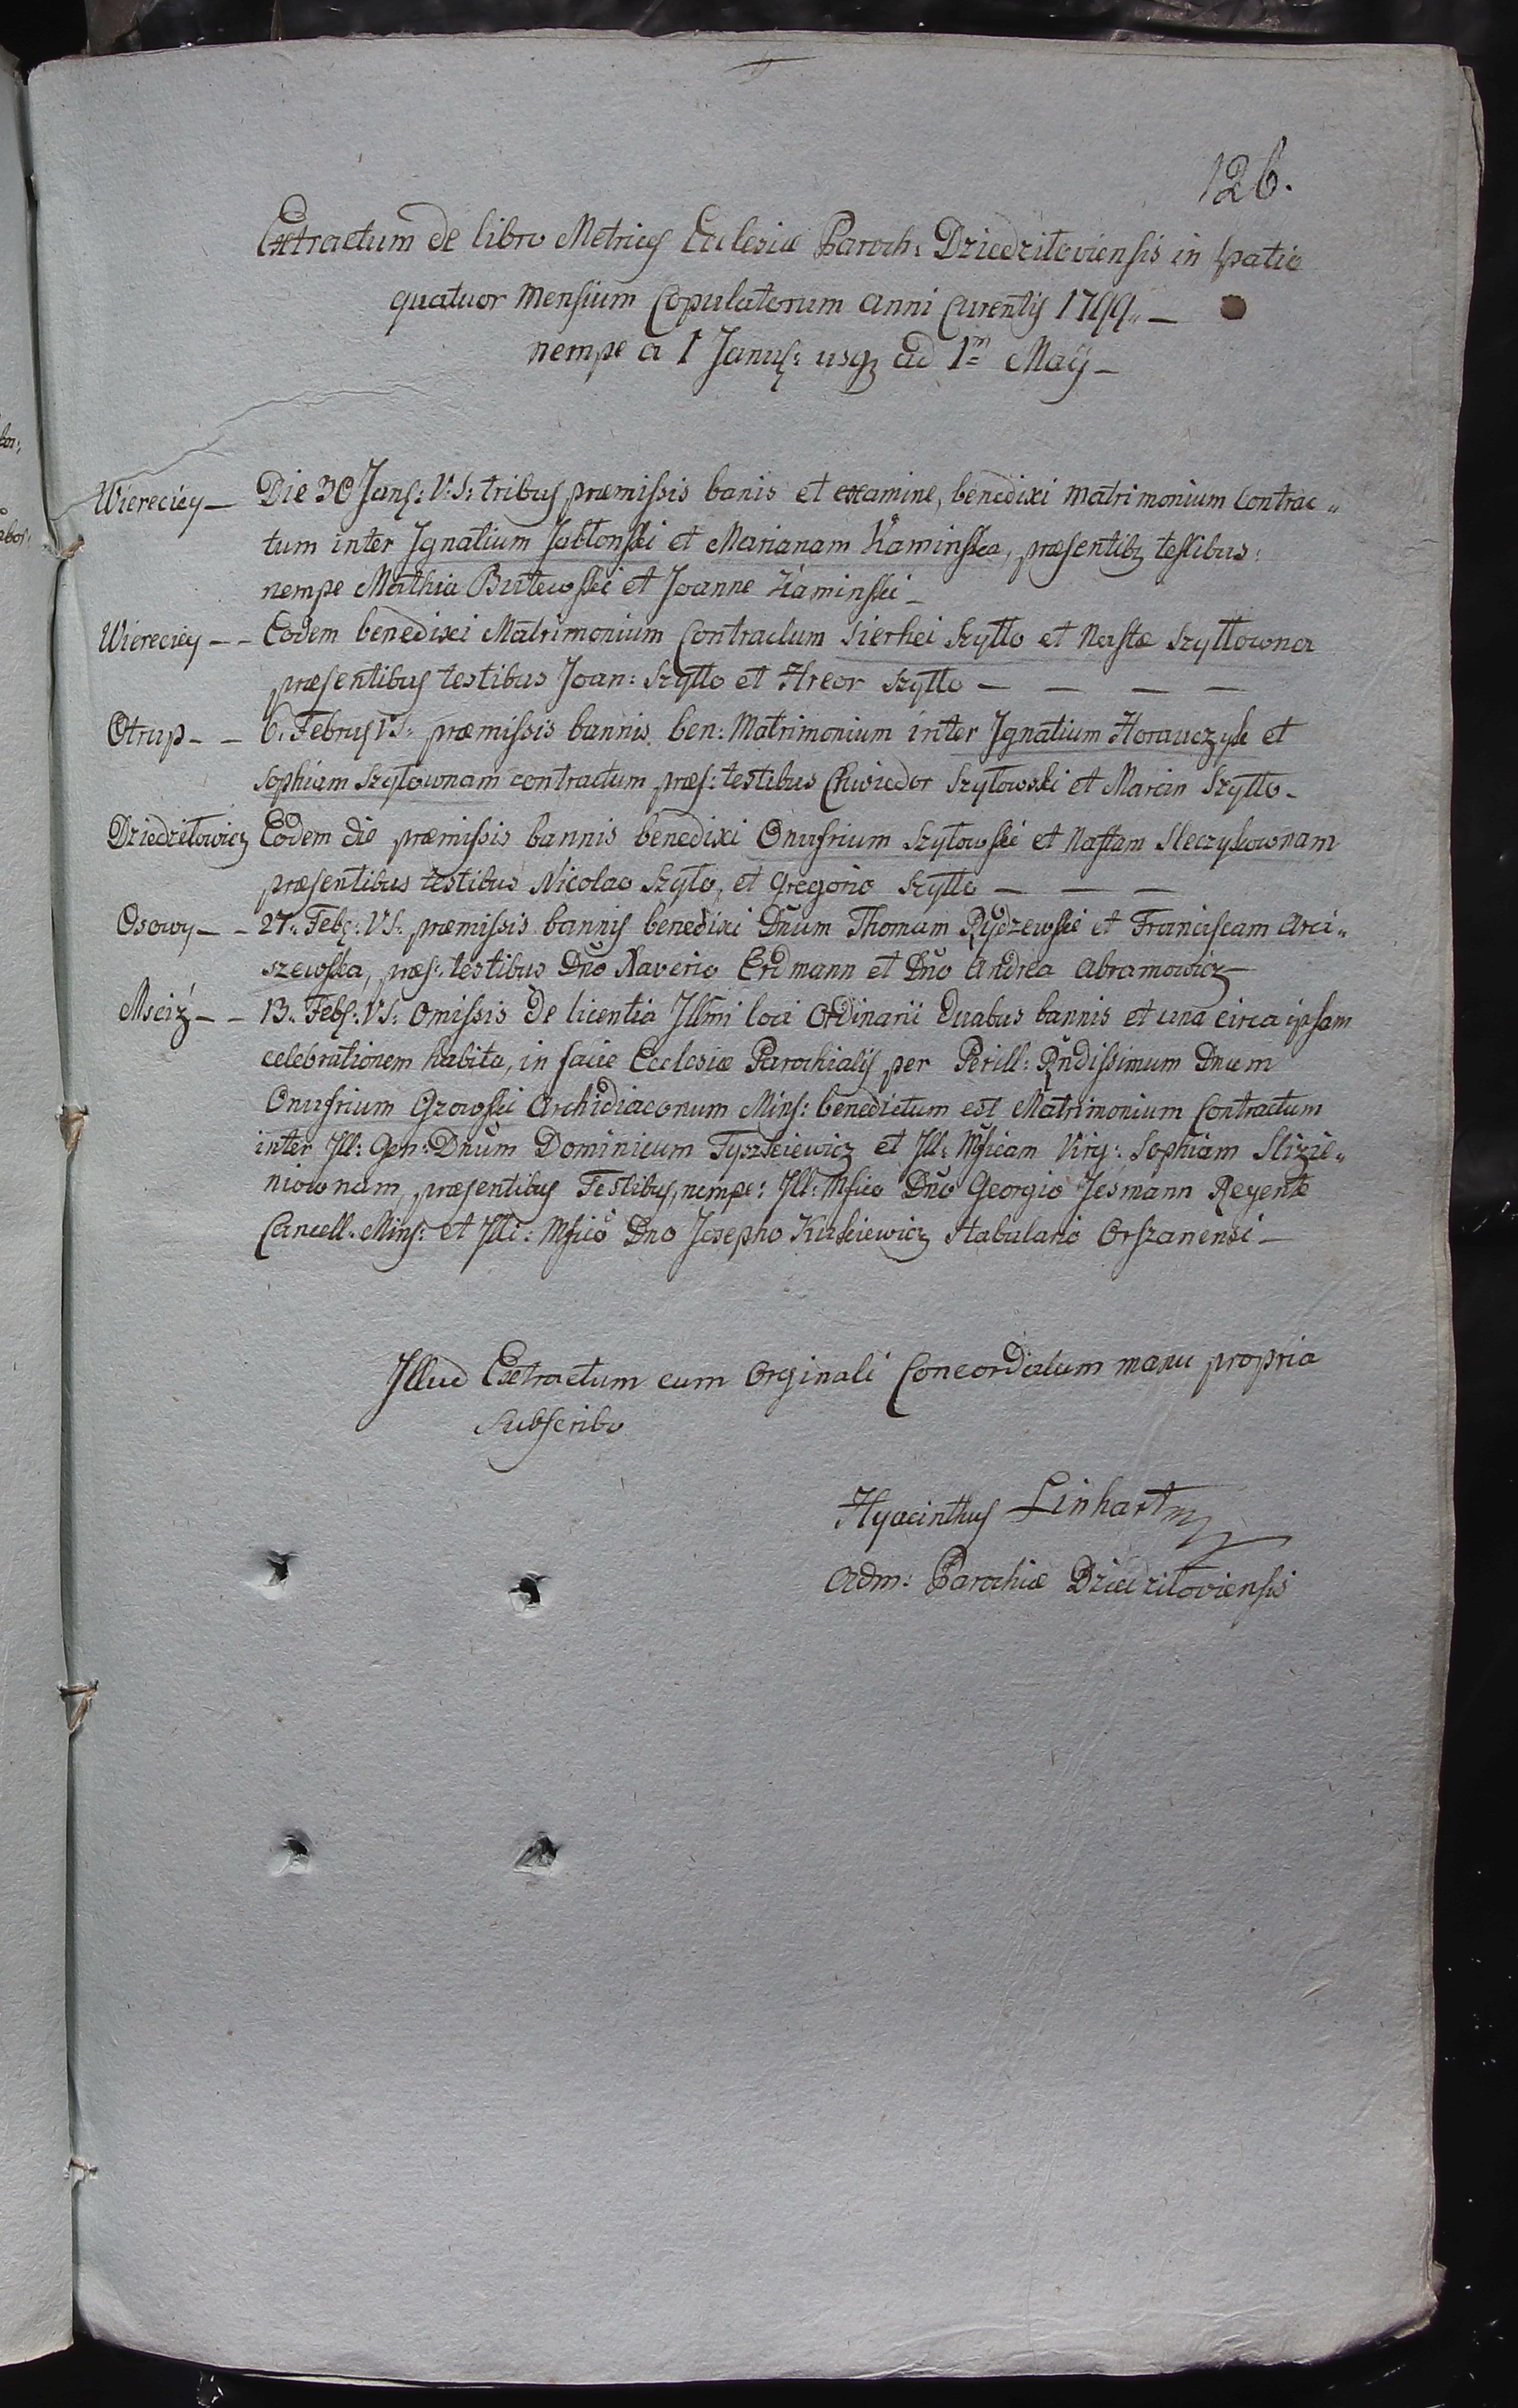 126.
Extractum de libro Metrices Eclesiæ Paroch: Dziedziłoviensis in spatio
quatuor mensium Copulatorum anni Curentis 1799. —
nempe a 1 Januar: usq ad 1m Maij —
Wiereciey — Die 30 Jans: V.S: tribus præmissis banis et examine, benedixi matrimonium Contrac„
tum inter Ignatium Jabłonski et Marianam Kaminska, præsentibq testibus:
nempe Mathia Butewski et Joanne Kaminski —
Wiereciey — — Eodem benedixi Matrimonium Contractum Sierhei Szyłło et Nasta Szyłłowna
præsentibus testibus Joan: Szyłło et Hreor Szyłło — — — —
Otrup — — 6. Februs VS: præmissis bannis ben: Matrimonium inter Ignatium Horauczyk et
Sophiam Szyłownam contractum præs: testibus Chwiedor Szyłowski et Marcin Szyłło —
Dziedziłowicz Eodem die præmissis bannis benedixi Onufrium Szyłowski et Nastam Sleczykownam
præsentibus testibus Nicolao Szyło, et Gregorio Szyłło — — —
Osowy — — 27. Feb: VS: præmissis bannis benedixi Dnum Thomam Rydzewski et Franciscam Arci„
szewska, præs: testibus Dno Xaverio Erdmann et Dno Andrea Abramowicz —
Msciż — — 13. Febs: VS: Omissis de licentia Illmi loci Ordinarii duabus bannis et una circa ipsam
celebrationem habita, in facie Ecclesiæ Parochialis per Perill: Rndissimum Dnum
Onufrium Gzowski Archidiaconum Mins: benedictum est Matrimonium Contractum
inter Ill: Gen: Dnum Dominicum Tyszkiewicz et Ill: Mficam Virg: Sophiam Slizie„
niownam, præsentibus Testibus, nempe: Ill: Mfico Dno Georgio Jesmann Regente
Cancell. Mins: et Ill: Mfico Dno Josepho Kurkiewicz Stabulario Orszanensi —
Illud Extractum cum Orginali Concordatum manu propria
Subscribo
Hyacinthus Linhart
Adm: Parochiæ Dziedziłoviensis